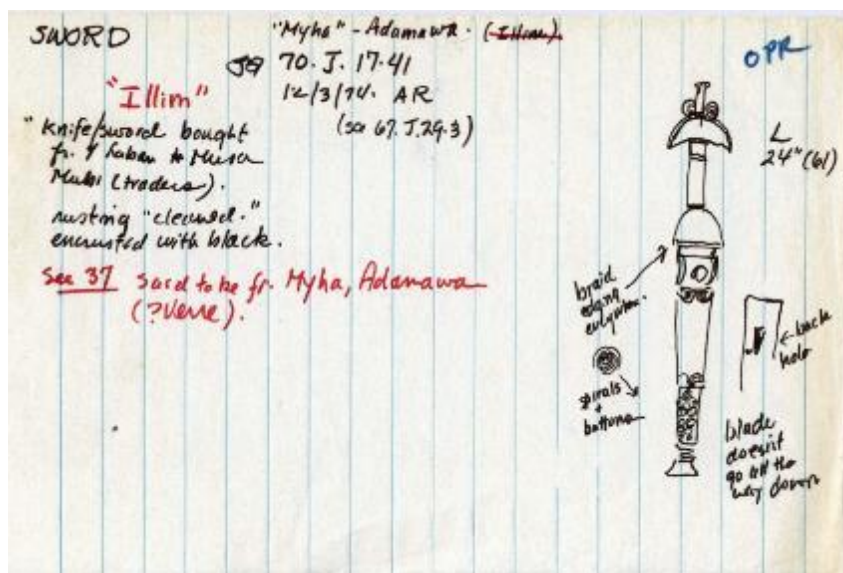 SWORD
"Myha" - Adamawa. (Illim)
OPR
JQ 70. J. 17.41
"Illim"
12/3/74. AR
(see 67. J.29.3)
"Knife/sword bought
fr. Y to Musa
(traders).
rusting "cleaned."
encrusted with black.
See 37 Said to be fr. Myha, Adamawa
(?Verre).
L
24" (61)
braid
edging
spirals
+
buttons
←back
hole
blade
doesn't
go all the
way down